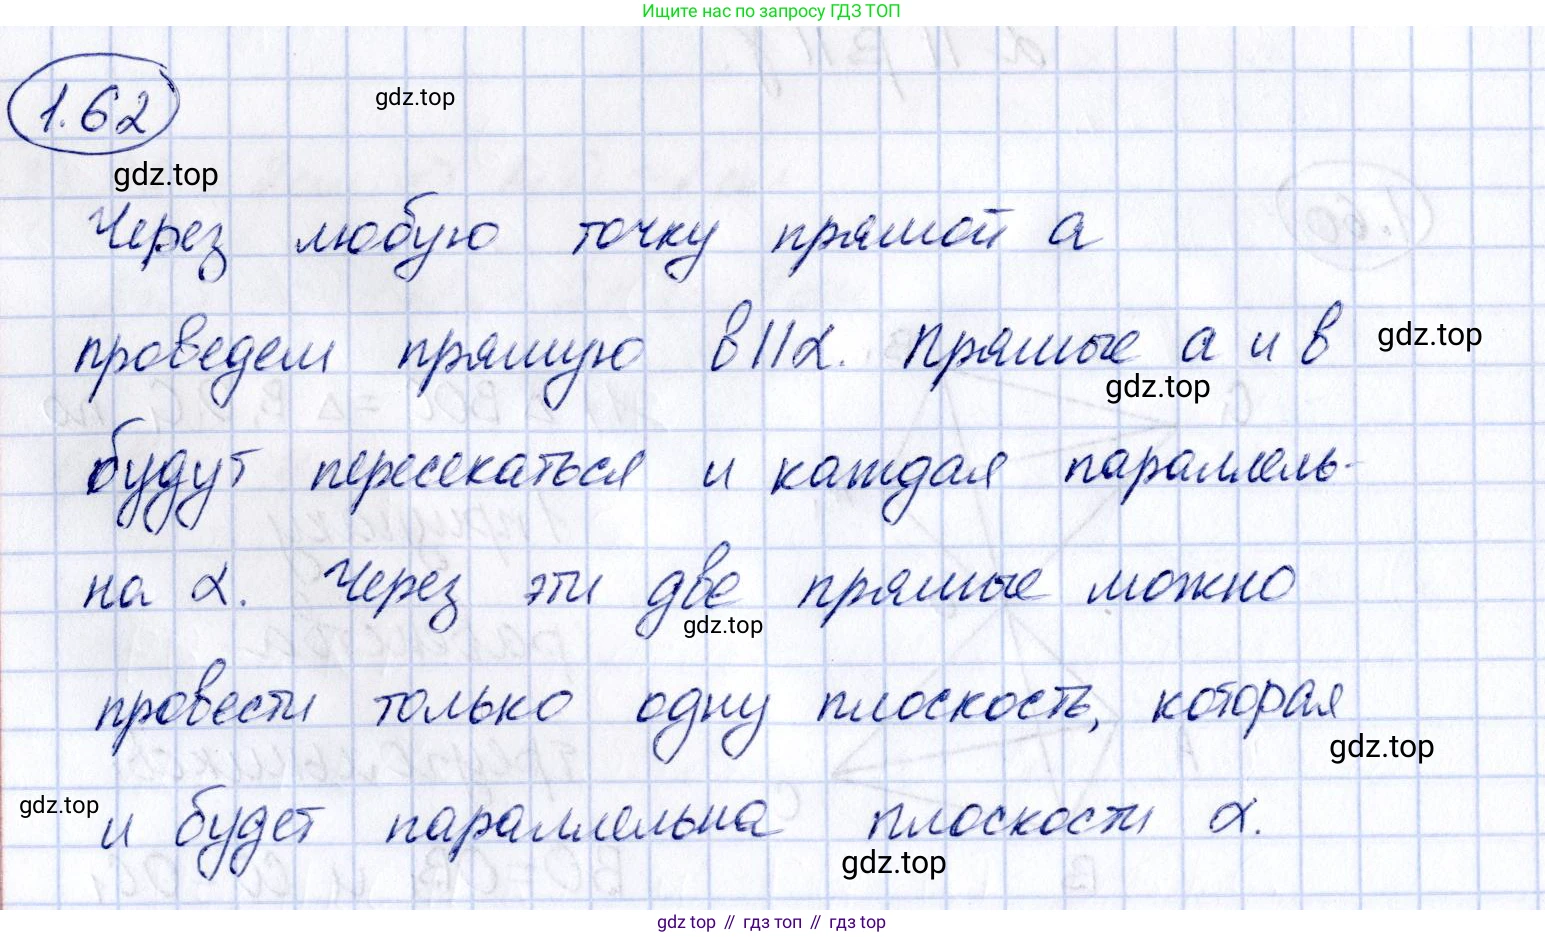 Ищите нас по запросу ГДЗ ТОП
1.62
gdz.top
gdz.top
Через любую точку прямой a
проведем прямую в || α. Прямые a и в
gdz.top
gdz.top
будут пересекаться и каждая параллель-
на α. Через эти две прямые можно
gdz.top
провести только одну плоскость, которая
gdz.top
gdz.top
и будет параллельна плоскости α.
gdz.top
gdz top // гдз топ // gdz top